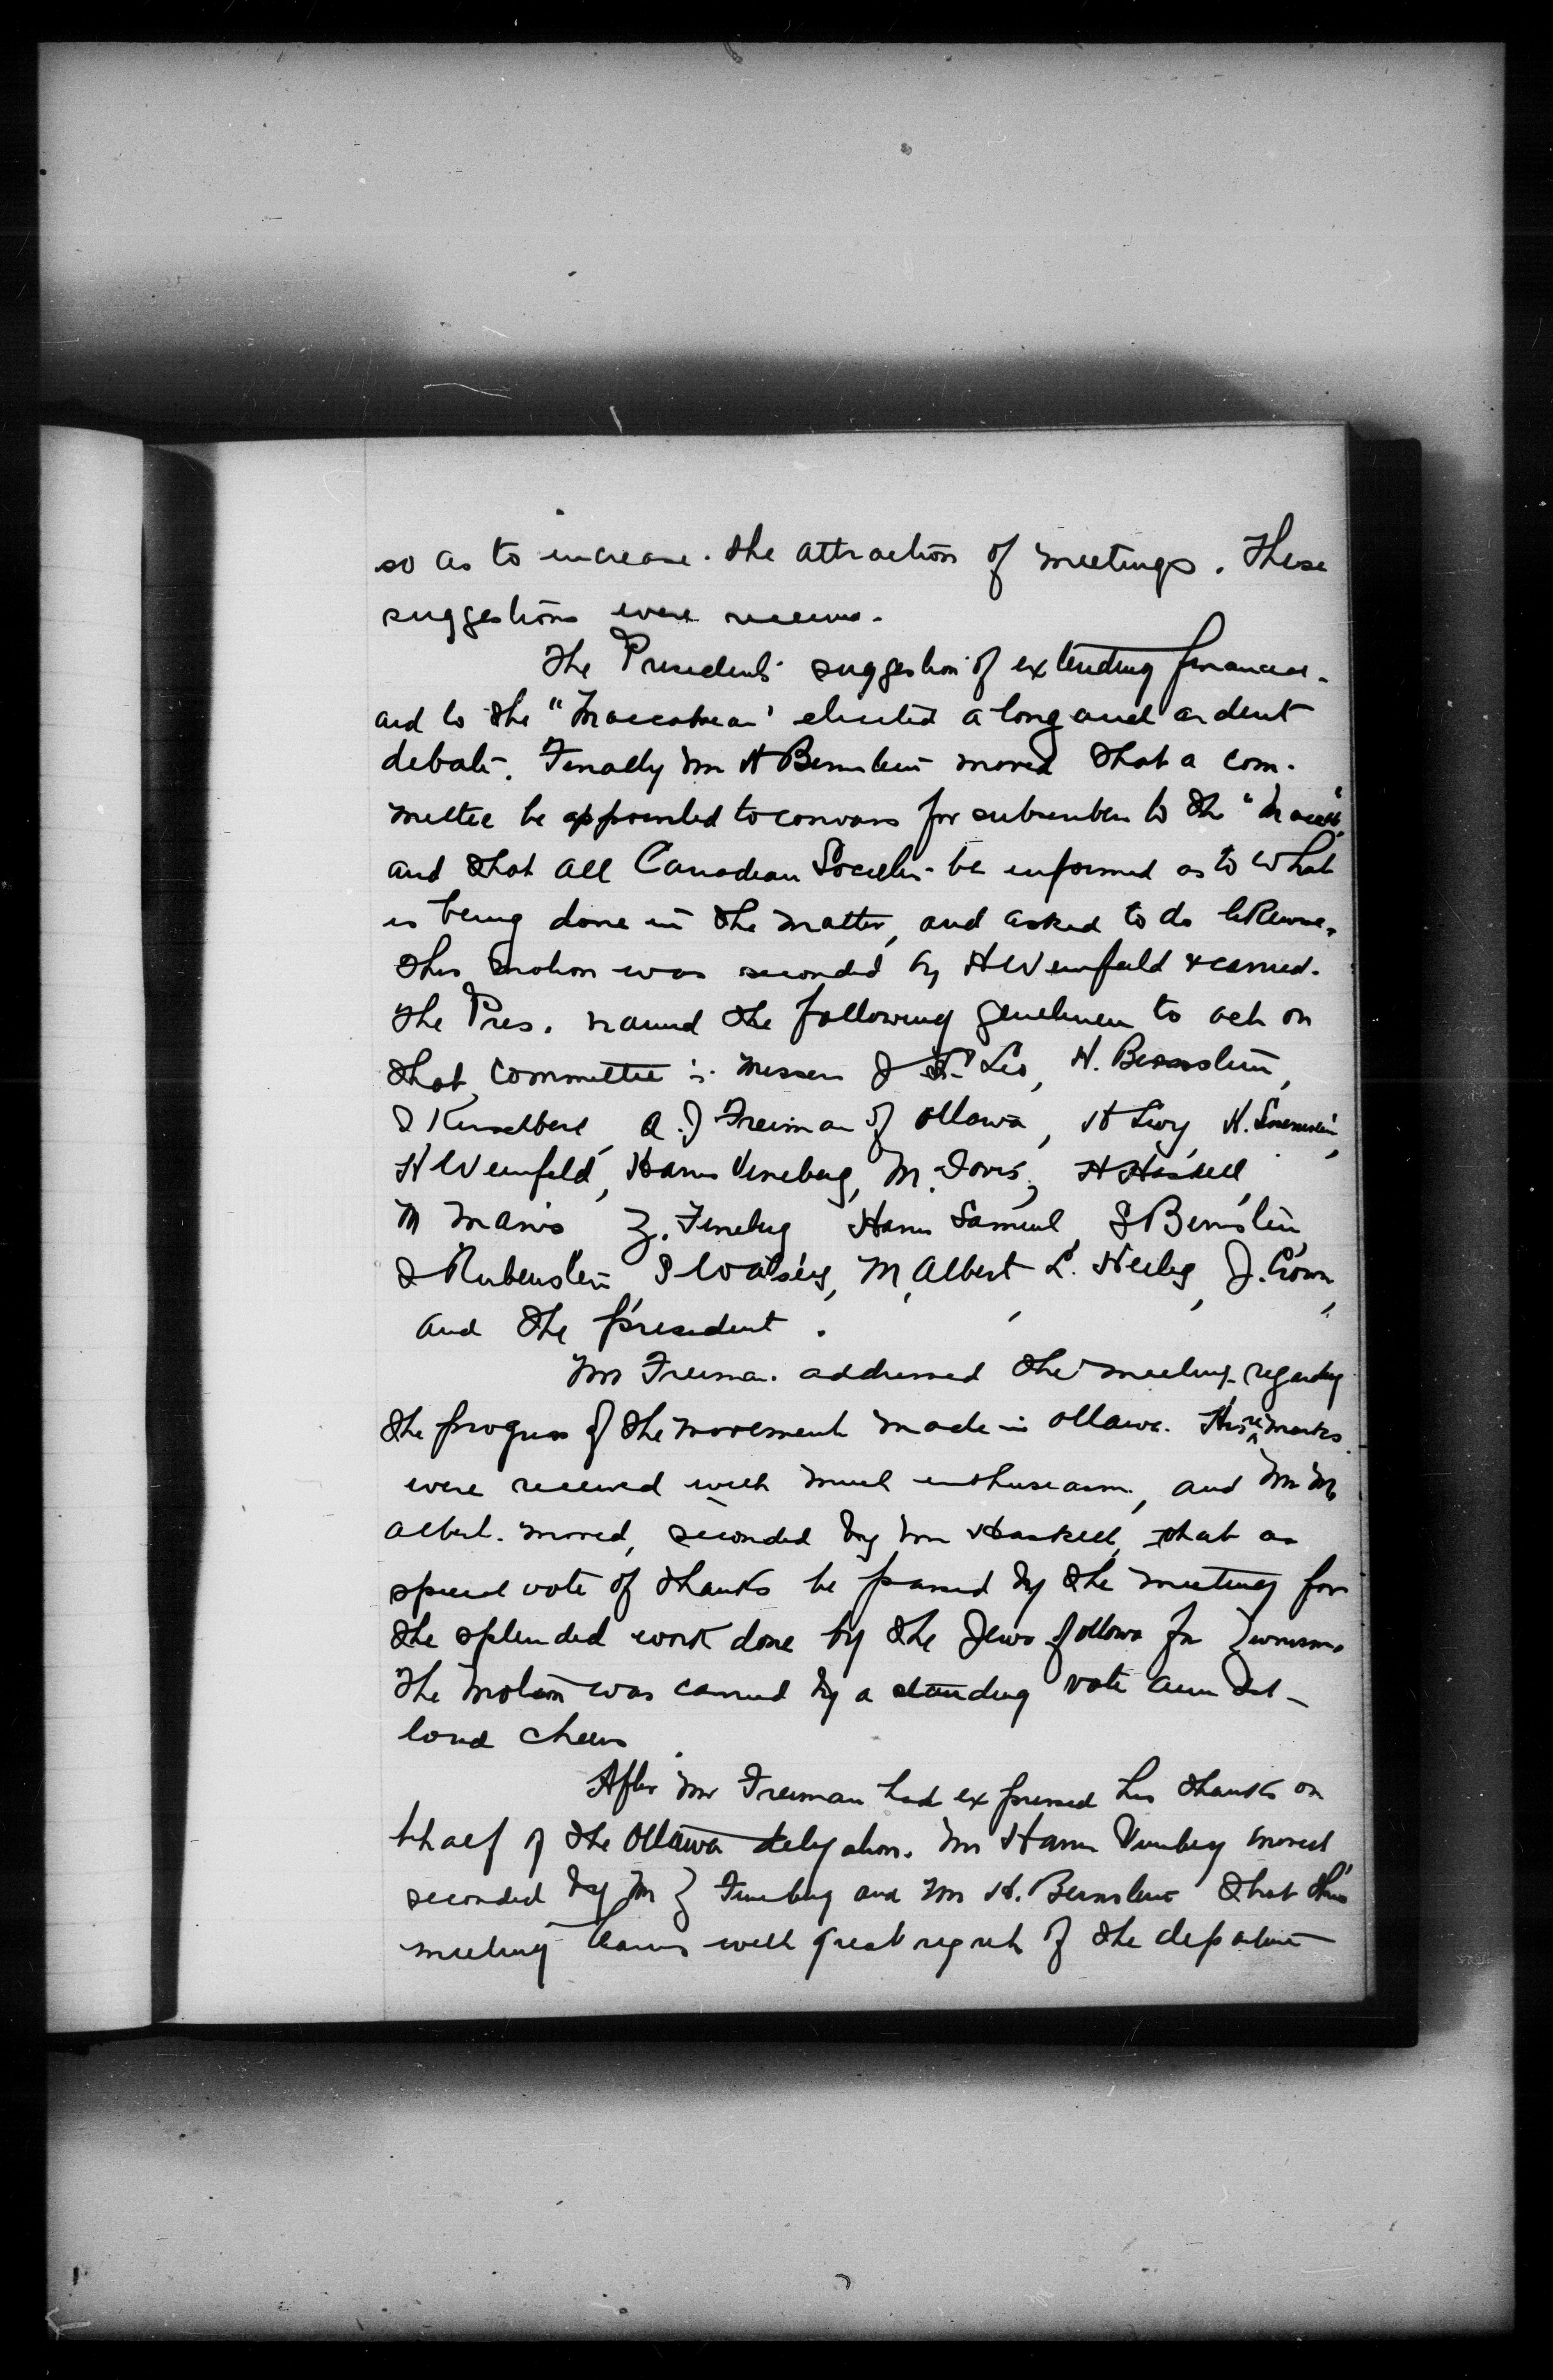 so as to increase the attraction of meetings. These
suggestions were
The President's suggestion of extending financial
aid to the "Maccabean" elicited a long and ardent
debate. Finally Mr H Bernstein moved that a com-
mittee be appointed to canvass for subscribers to the "Macc"
and that all Canadian Societies be informed as to what
is being done in the matter, and asked to do likewise.
This motion was seconded by H Weinfield & carried.
The Pres. named the following gentlemen to act on
that committee: Messrs J Leo, H. Bernstein,
A. J Freiman of Ottawa, H Levy, H.
H Weinfield, Harris Vineberg, M. Davis, H Haskell,
M Z. Fineberg Harris Samuel, S Bernstein,
I Rubenstein, S M. Albert L. J.
and the president.
Mr Freiman addressed the meeting regarding
the progress of the movement made in Ottawa. His remarks
were received with much enthusiasm, and Mr M
Albert moved, seconded by Mr Haskell, that a
special vote of thanks be passed by the meeting for
the splendid work done by the Jews of Ottawa for Zionism.
The motion was carried by a standing vote amidst
loud cheers.
After Mr Freiman had expressed his thanks on
behalf of the Ottawa delegation. Mr Harris Vineberg moved
seconded by M Z Fineberg and Mr H. Bernstein that this
meeting learns with great regret of the departure